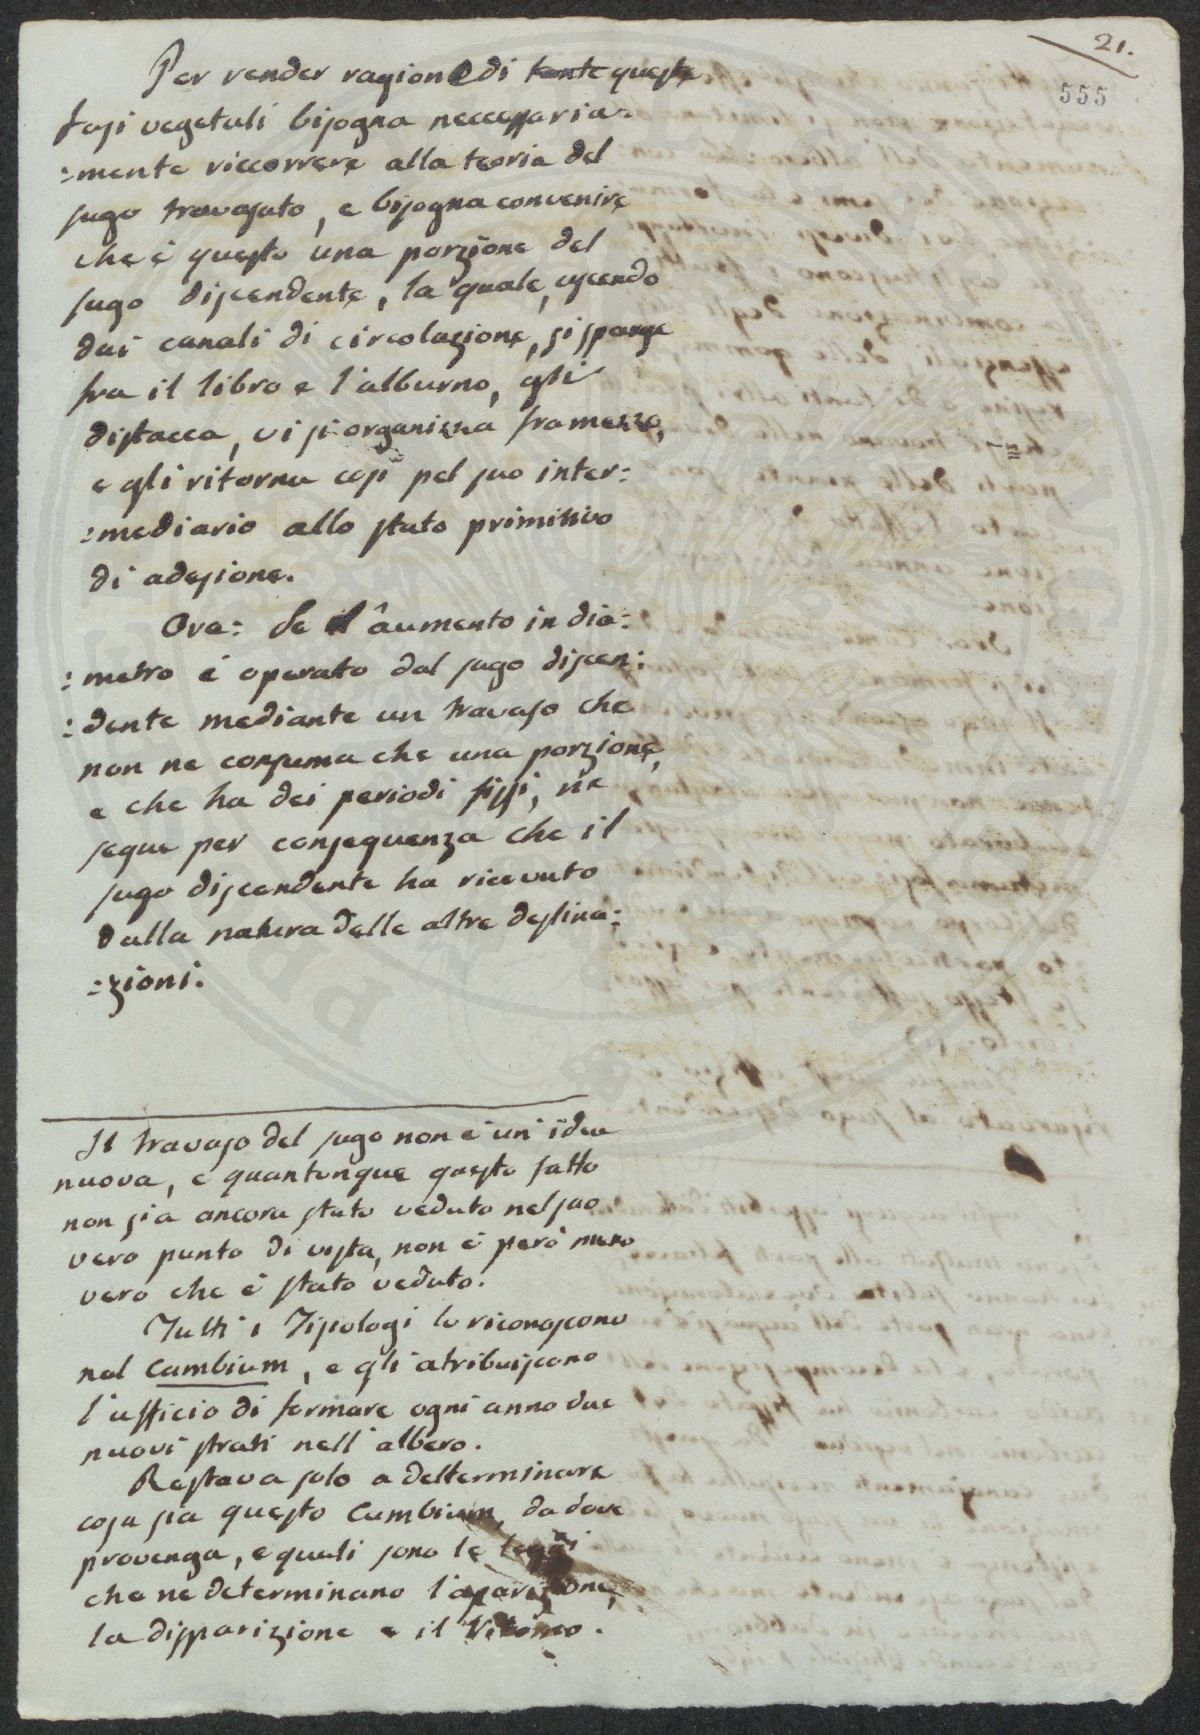 21.
555
Per render ragione di tante queste
fasi vegetali bisogna neccessaria=
=mente riccorrere alla teoria del
sugo travasato, e bisogna convenire
che è questo una porzione del
sugo discendente, la quale, uscendo
dai canali di circolazione, si sparge
fra il libro e l'alburno, gli
distacca, vi si organizza framezzo,
e gli ritorna così pel suo inter=
=mediario allo stato primitivo
di adesione.
Ora: Se l'aumento in dia=
=metro è operato dal sugo discen=
=dente mediante un travaso che
non ne consuma che una porzione,
e che ha dei periodi fissi, ne
segue per conseguenza che il
sugo discendente ha ricevuto
dalla natura delle altre destina=
=zioni.
Il travaso del sugo non è un' idea
nuova, e quantunque questo fatto
non sia ancora stato veduto nel suo
vero punto di vista, non è però meno
vero che è stato veduto.
Tutti i Fisiologi lo riconoscono
nel Cambium, e gli atribuiscono
l'ufficio di formare ogni anno due
nuovi strati nell'albero.
Restava solo a detterminare
cosa sia questo Cambium, da dove
provenga, e quali sono le leggi
che ne determinano l'aparizione,
la disparizione e il ritorno.